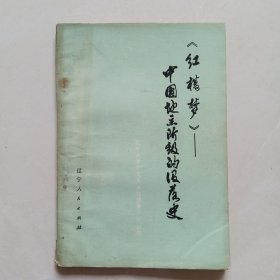 《红楼梦》——
中国地主阶级的没落史
辽宁人民出版社